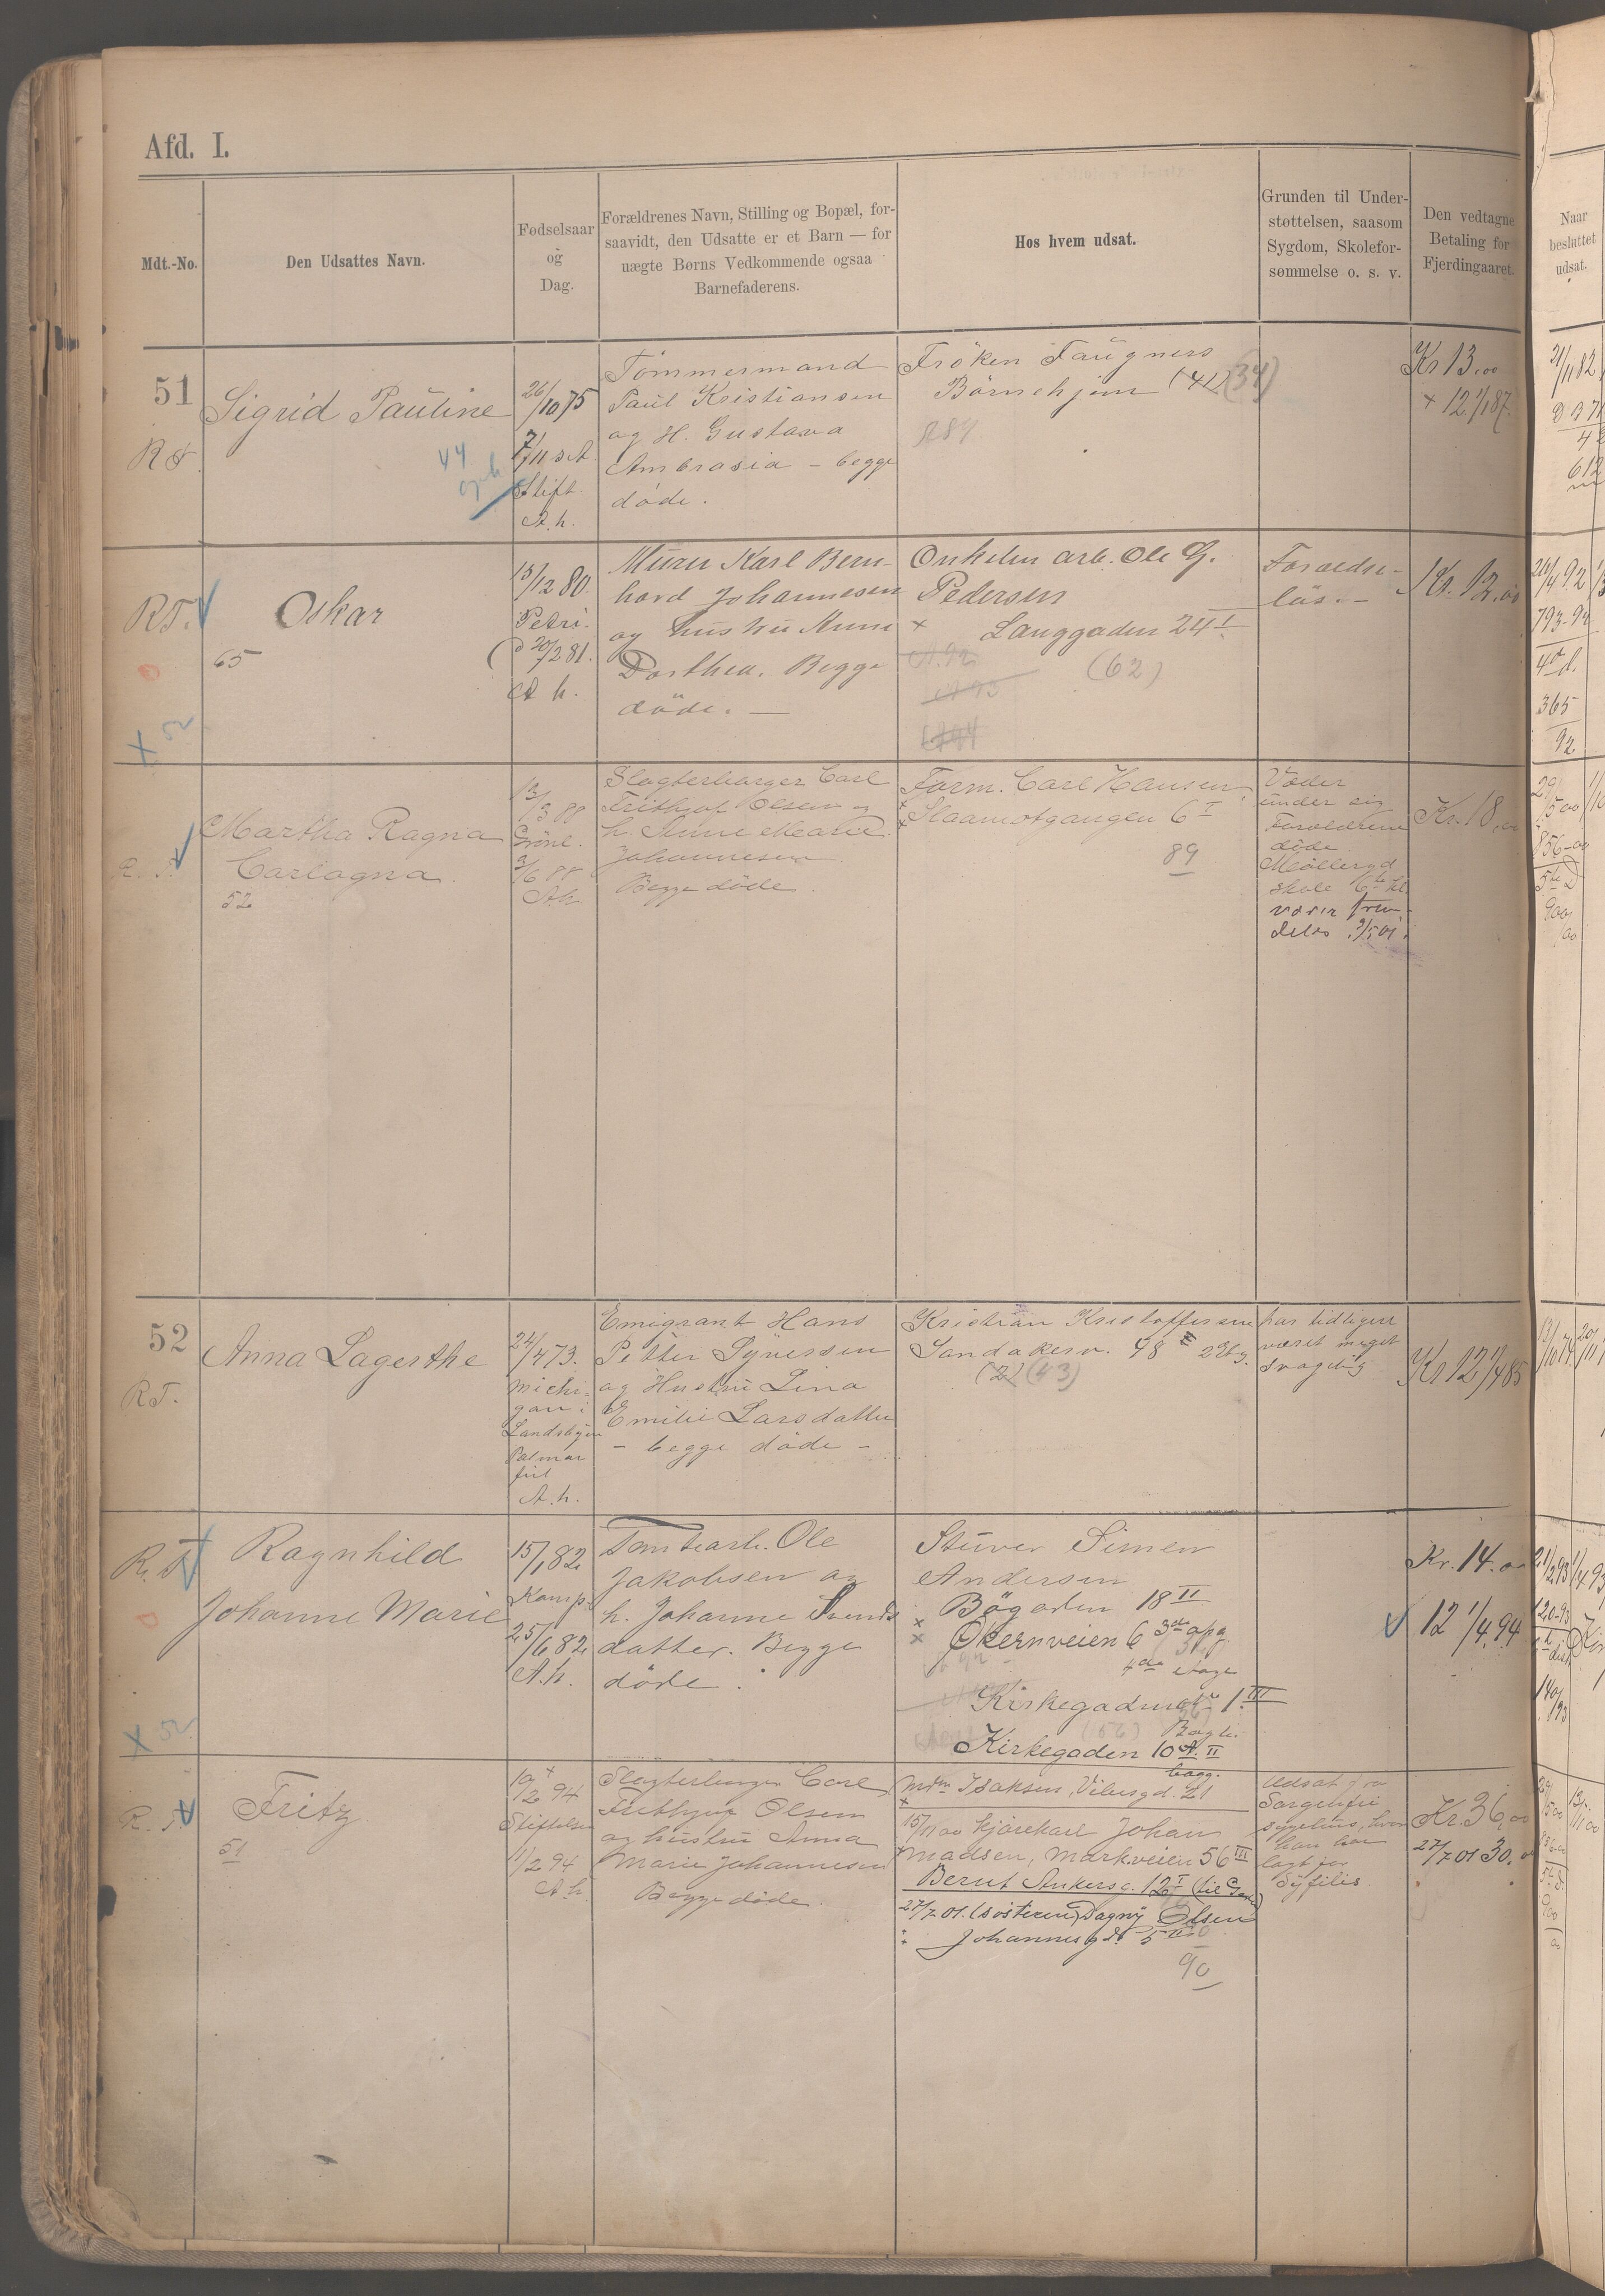 Afd. I.
Mdt.-No.
Den Udsattes Navn.
Fødselsaar
og
Dag.
Forældrenes Navn, Stilling og Bopæl, for-
saavidt, den Udsatte er et Barn — for
uægte Børns Vedkommende ogsaa
Barnefaderens.
Hos hvem udsat.
Grunden til Under-
støttelsen, saasom
Sygdom, Skolefor-
sømmelse o. s. v.
Den vedtagne
Betaling for
Fjerdingaaret.
Naar
besluttet
udsat.
51
Sigrid Pauline
26/10 75
7/11 s. A
Stift.
A. h.
44
Tömmermand
Paul Kristiansen
og H. Gustava
Ambrosia - begge
döde.
Fröken Faugners
Börnehjem (41) (34)
Kr 13.00
+ 12 1/1 87.
21/11 82
R.T.
65
Oskar
13/12 80.
Petri.
d 20/2 81.
A h.
Murer Karl Bern-
hard Johannesen
og hustru Anne
Dorthea. Begge
döde. —
Onkelen arb. Ole G.
Pedersen
× Langgaden 24 I
(62)
A. 92
A 93
Forældre-
lös. —
Kr. 12.00
26/4 92
793-92
365
92
× 52
Martha Ragna
Carlagna.
52
13/3 88
Grönl.
3/6 88
Ah
Slagterborger Carl
Frithjof Olsen og
h. Anne Marie
Johannesen
Begge döde.
Form. Carl Hansen,
Slaamotgangen 6 I
89
Vader
under sig
Forældrene
döde
Möllergd
skole 6te kl
været frem-
deles 9/5 01.
Kr. 18.00
29/5 00
856-00
52
R.T.
Anna Lagerthe
24/4 73.
Michi-
gan i
Landsbyen
Palmar
A. h.
Emigrant Hans
Petter Syversen
og Hustru Lina
Emilie Larsdatter
- begge döde -
Kristian Kristoffersen
Sandakerv. 48 2 Etg.
(2) (43)
har tidligere
været meget
svagelig
Kr 12 1/4 85
13/10 74
20/11
R. T.
Ragnhild
Johanne Marie
15/1 82
Kamp.
25/6 82
A. h.
Tomtearb. Ole
Jakobsen og
h. Johanne Svends
datter. Begge
döde.
Stuver Simen
Andersen
× Bögaden 18 II
× Økernveien 6 3die opg.
4de etage
Kirkegaden 1 III
Kirkegaden 10 A. II
bagg.
Kr. 14.00
12 1/4 94
21/2 93
1/4 93
120-93
× 52
Fritz
51
10/2 94
Stiftelsen
11/2 94
A h.
Slagterborger Carl
Frithjof Olsen
og hustru Anna
Marie Johannesen
Begge döde.
Mdm Isaksen, Vibesgd. 21
15/11 00 kjörekarl Johan
Madsen, Markveien 56 III
Bernt Ankersg. 12 I
27/7 01. (sösteren) Dagny Olsen
Johannesgd. 5 II
90
Udsat fra
han har
lagt for
Syfilis
Kr. 36.00
27/7 01 30.